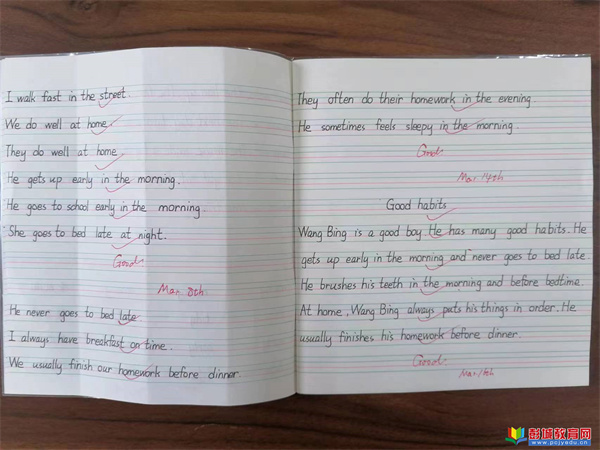 I walk fast in the street.
We do well at home.
They do well at home.
He gets up early in the morning.
He goes to school early in the morning.
She goes to bed late at night.
Good
Mar. 8th.
He never goes to bed late.
I always have breakfast on time.
We usually finish our homework before dinner.
They often do their homework in the evening.
He sometimes feels sleepy in the morning.
Good
Mar. 14th
Good habits
Wang Bing is a good boy. He has many good habits. He
gets up early in the morning and never goes to bed late.
He brushes his teeth in the morning and before bedtime.
At home, Wang Bing always puts his things in order. He
usually finishes his homework before dinner.
Good
彭城教育网
www.pcjyedu.cn